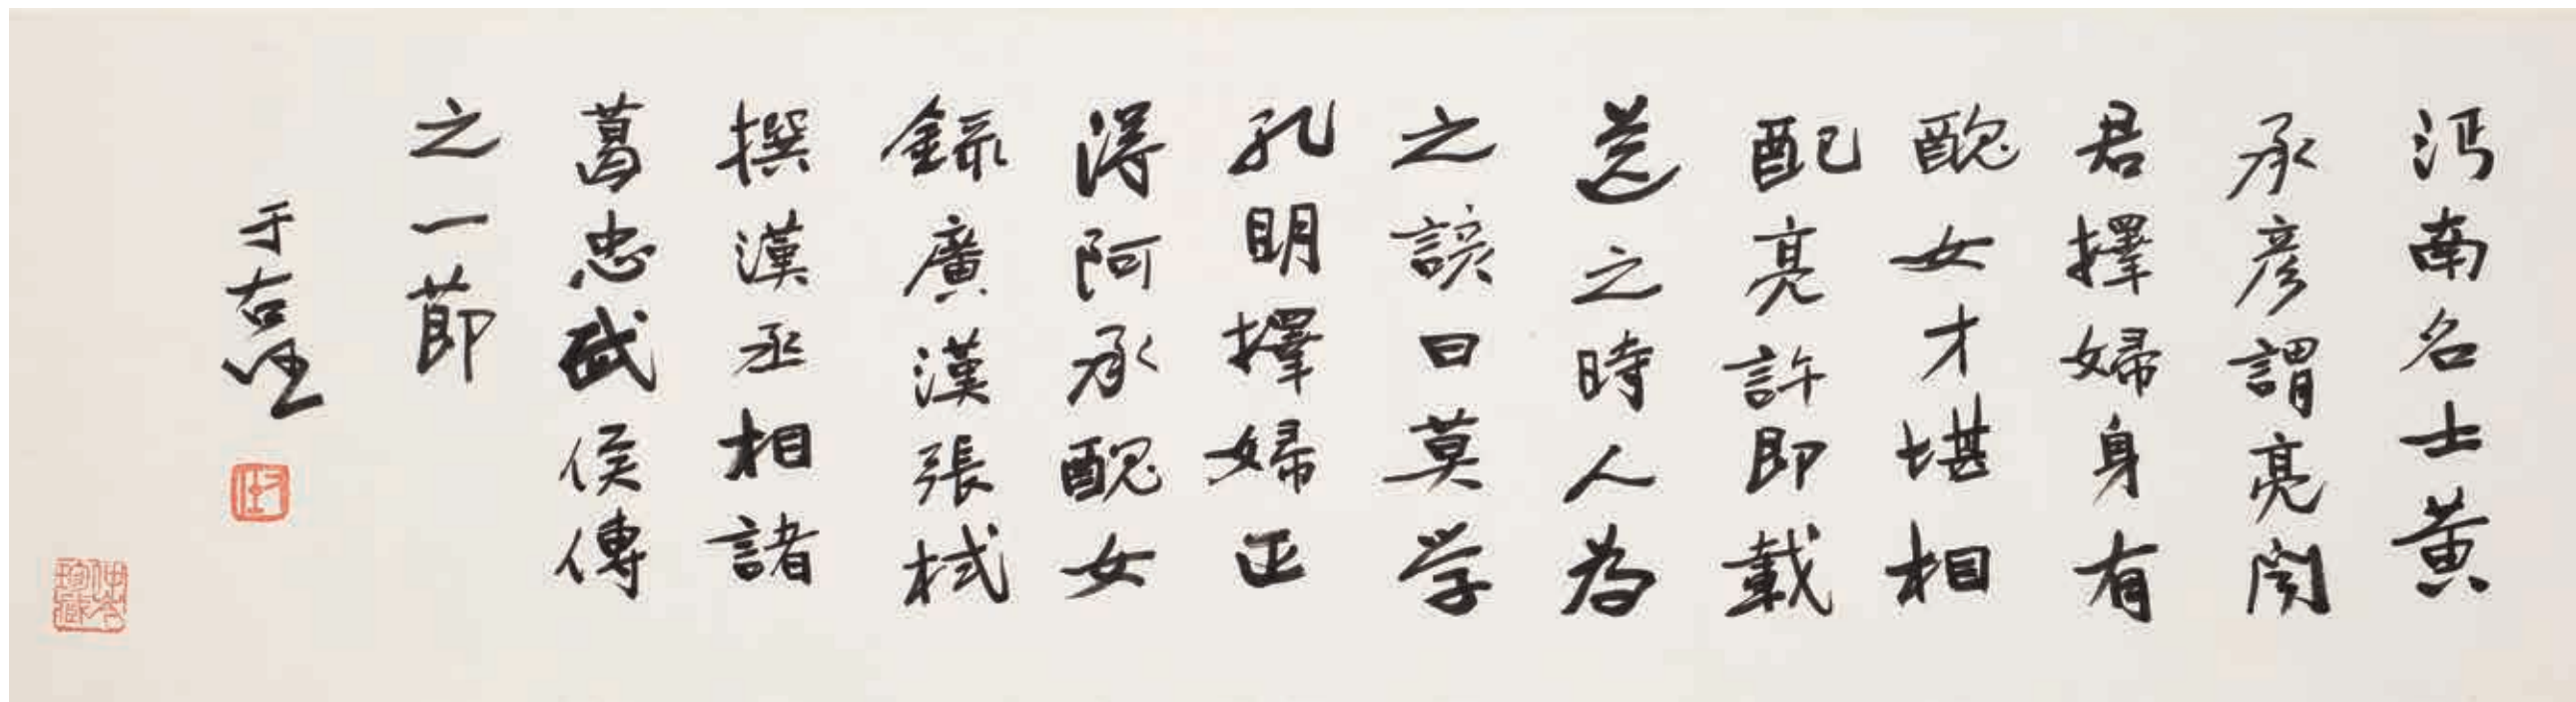 沔南名士黄
承彦謂亮聞
君擇婦身有
醜女才堪相
配亮許即載
送之時人為
之諺曰莫学
孔明擇婦正
得阿承醜女
錄廣漢張栻
撰漢丞相諸
葛忠武侯傳
之一節
于右任